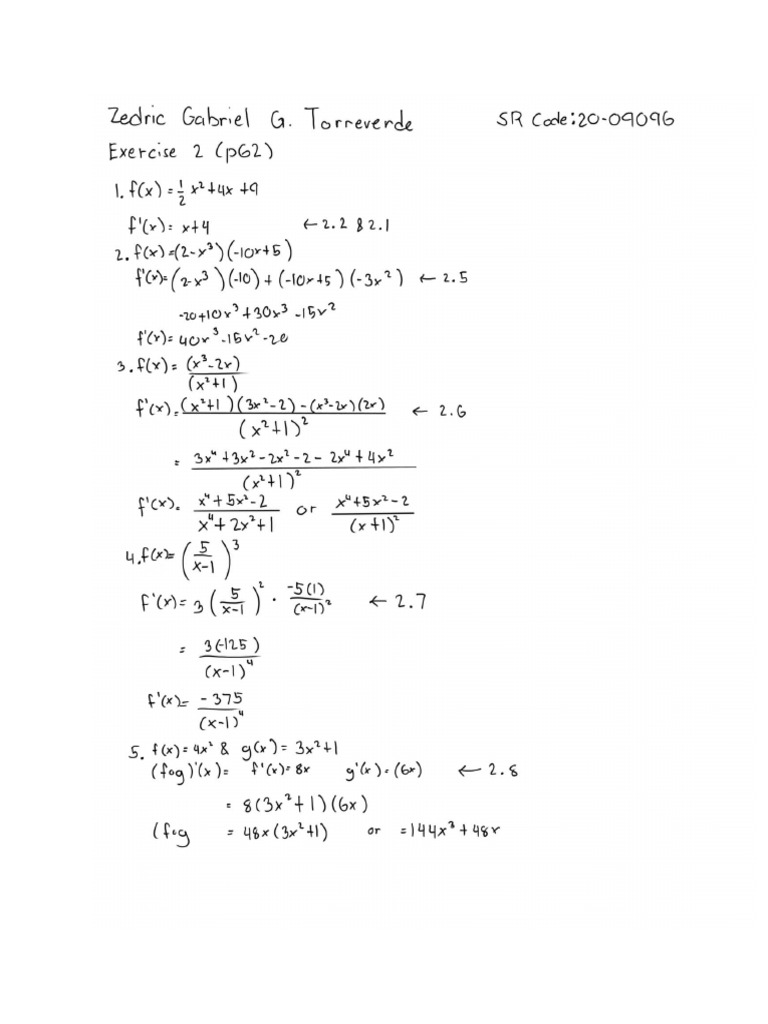 Zedric Gabriel G. Torreverde SR Code:20-09096
Exercise 2 (p62)
1. f(x) = 1/2 x² + 4x + 9
f'(x) = x+4 ← 2.2 & 2.1
2. f(x) = (2-x³)(-10x+5)
f'(x) = (2-x³)(-10) + (-10x+5)(-3x²) ← 2.5
-20+10x³+30x³-15x²
f'(x) = 40x³-15x²-20
3. f(x) = (x³-2x)/(x²+1)
f'(x) = (x²+1)(3x²-2)-(x³-2x)(2x)/(x²+1)² ← 2.6
= 3x⁴+3x²-2x²-2-2x⁴+4x²/(x²+1)²
f'(x) = x⁴+5x²-2/x⁴+2x²+1 or x⁴+5x²-2/(x+1)²
4. f(x) = (5/x-1)³
f'(x) = 3(5/x-1)² · -5(1)/(x-1)² ← 2.7
= 3(-125)/(x-1)⁴
f'(x) = -375/(x-1)⁴
5. f(x) = 4x² & g(x) = 3x²+1
(fog)'(x) = f'(x) = 8x g'(x) = (6x) ← 2.8
= 8(3x²+1)(6x)
(fog = 48x(3x²+1) or = 144x³+48x